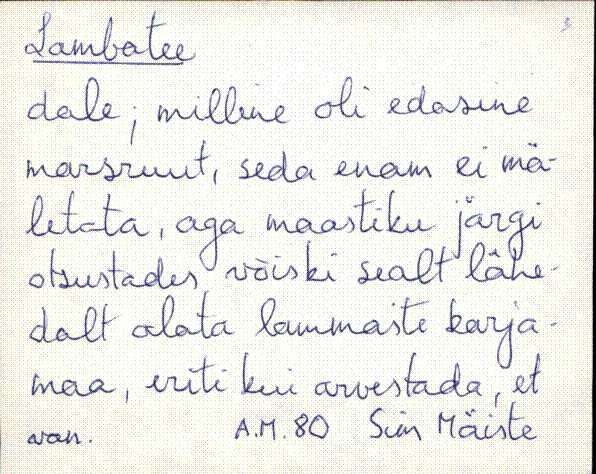 3
Lambatee
dale; milline oli edasine
marsruut, seda enam ei mä-
letata, aga maastiku järgi
otsustades võiski sealt lähe-
dalt alata lammaste karja-
maa, eriti kui arvestada, et
van. A.M. 80 Siim Mäiste